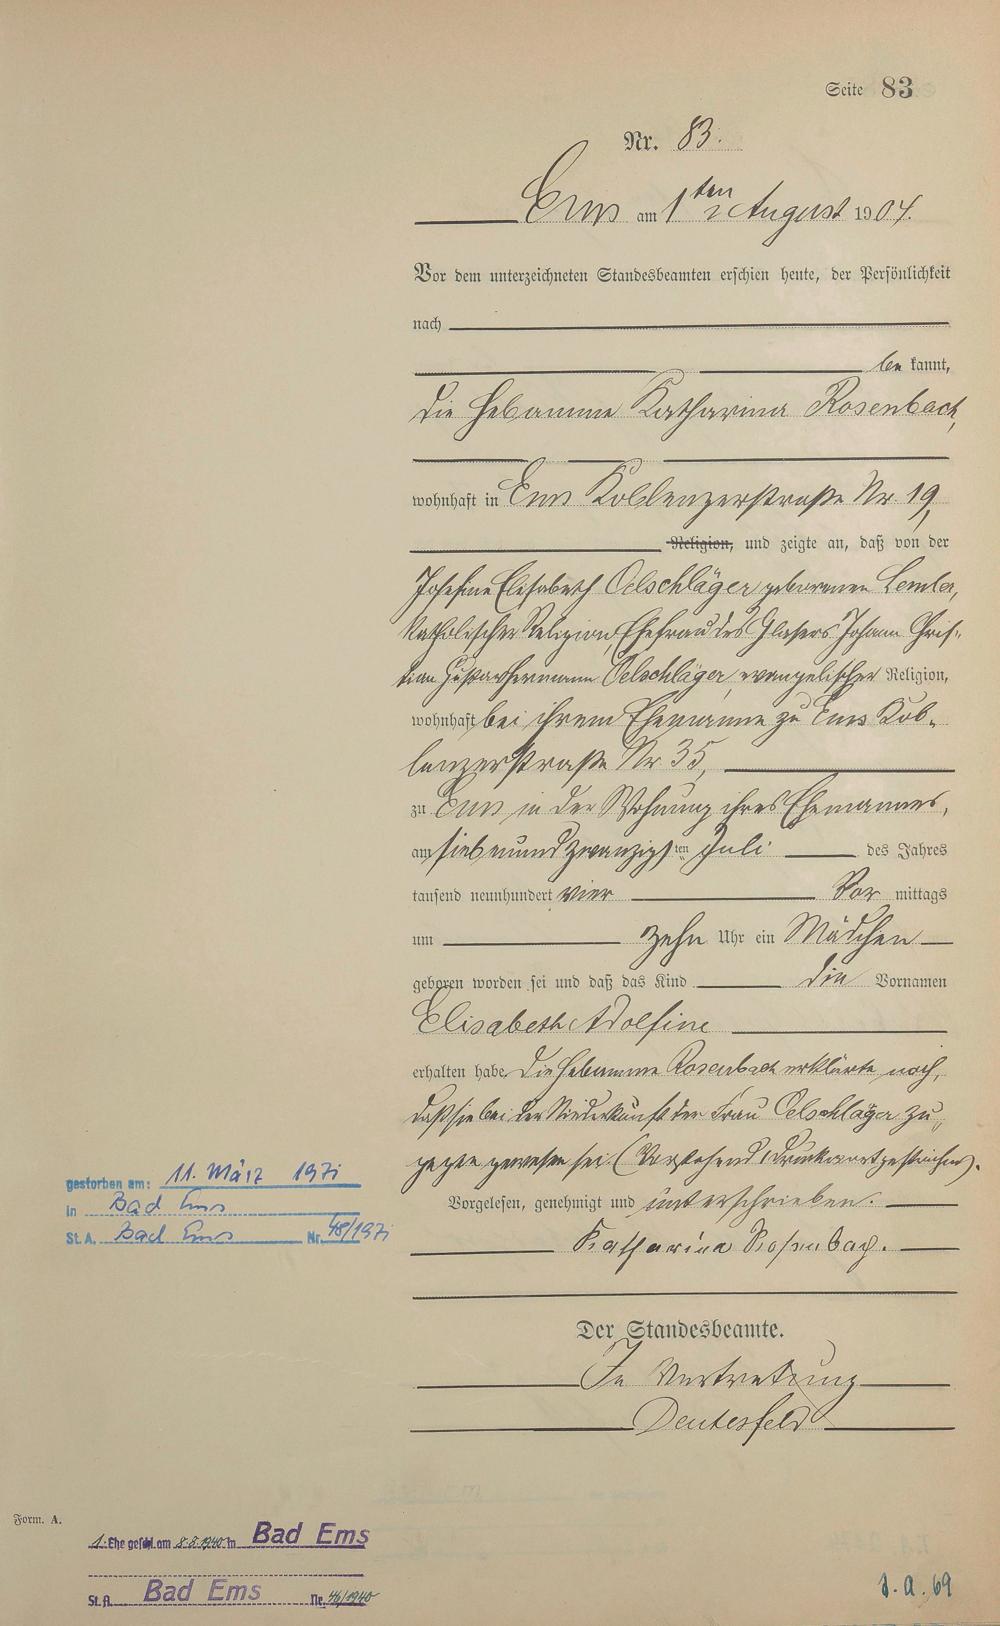 Seite 83
Nr. 83.
Ems am 1ten August 1904.
Vor dem unterzeichneten Standesbeamten erschien heute, der Persönlichkeit
nach
be kannt,
die Hebamme Katharina Rosenbach,
wohnhaft in Ems Koblenzerstraße Nr. 19,
Religion, und zeigte an, daß von der
Josefine Elisabeth Oelschläger geborenen Lemler,
katholischer Religion, Ehefrau des Glasers Johann Chris-
tian Gustav Hermann Oelschläger, evangelischer Religion,
wohnhaft bei ihrem Ehemanne zu Ems Kob-
lenzerstraße Nr 35,
zu Ems in der Wohnung ihres Ehemannes,
am siebenundzwanzigsten Juli des Jahres
tausend neunhundert vier Vor mittags
um zehn Uhr ein Mädchen
geboren worden sei und daß das Kind die Vornamen
Elisabeth Adolfine
erhalten habe. Die Hebamme Rosenbach erklärte noch,
daß sie bei der Niederkunft der Frau Oelschläger zu-
gegen gewesen sei. (Vorstehend 1 Druckwort gestrichen).
Vorgelesen, genehmigt und unterschrieben.
Katharina Rosenbach.
Der Standesbeamte.
In Vertretung
Deutesfeld
gestorben am: 11. März 1971
in Bad Ems
St. A. Bad Ems Nr. 48/1971
Form. A.
1. Ehe geschl. am 8.8.1940 in Bad Ems
St. A. Bad Ems Nr. 46/1940